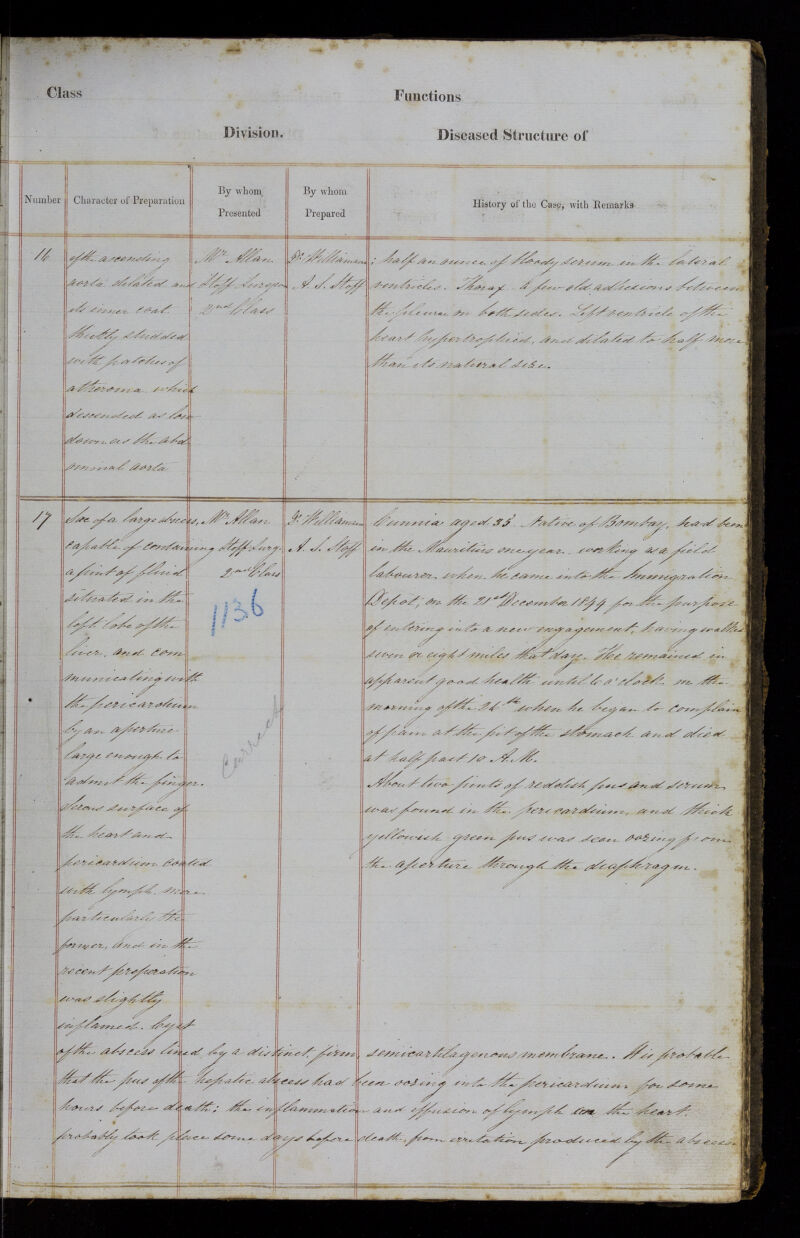 Class
Functions
Division.
Diseased Structure of
Number
Character of Preparation
By whom
Presented
By whom
Prepared
History of the Case, with Remarks
16
of the ascending
aorta dilated and
its inner coat
thickly studded
with patches of
atheroma which
descended as low
down as the abd
ominal aorta
Mr Allan
Staff Surgeon
2nd Class
Dr Williamson
A. S. Staff
: half an ounce of bloody serum in the lateral
ventricles. Thorax. A few old adhesions between
the pleurae on both sides. Left ventricle of the
heart hypertrophied, and dilated to half more
than its natural size.
17
Sac of a large abscess,
capable of containing
a pint of fluid
situated in the
left lobe of the
liver, and com
municating with
the pericardium
by an aperture
large enough to
admit the finger.
Serous surface of
the heart and
pericardium coated
with lymph more
particularly the
former, and in the
recent preparation
was slightly
inflamed. Cyst
Mr Allan
Staff Surg.
2nd Class
1136
Correct
Dr Williamson
A. S. Staff
Cunnia aged 35 Native of Bombay, had been
in the Mauritius one year working as a field
labourer, when he came into the Immigration
Depot, on the 21st December 1849 for the purpose
of entering into a new engagement, having walked
seven or eight miles that day. He remained in
apparent good health until 6 o'clock on the
morning of the 24th when he began to complain
of pain at the pit of the stomach and died
at half past 10 A.M.
About two pints of reddish pus and serum
was found in the pericardium, and thick
yellowish green pus was seen oozing from
the aperture through the diaphragm.
of the abscess lined by a distinct, firm, semicartilagenous membrane. It is probable
that the pus of the hepatic abscess had been oozing into the pericardium for some
hours before death: the inflammation and effusion of lymph on the heart.
probably took place some days before death, from irritation produced by the abscess